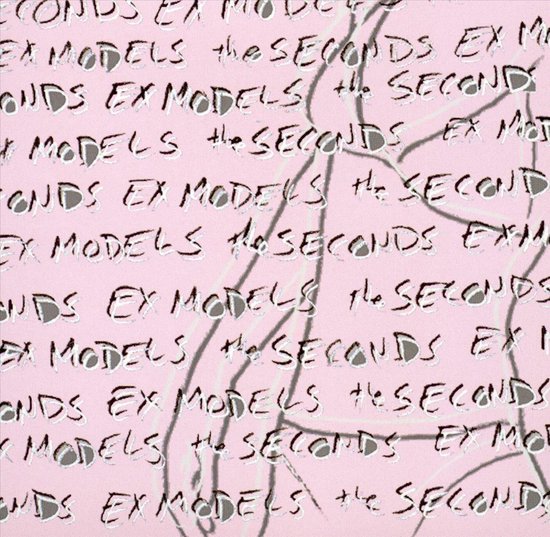 CONDS EX MODELS the SECONDS
EX MODELS the SECONDS EX M
ONDS EX MODELS the SECONDS
X MODELS the SECONDS EX MOD
CONDS EX MODELS the SECOND
EX MODELS the SECONDS EX M
ONDS EX MODELS the SECONDS
EX MODELS the SECONDS EX M
ONDS EX MODELS the SECONDS
X MODELS the SECONDS EX MO
ONDS EX MODELS the SECONDS